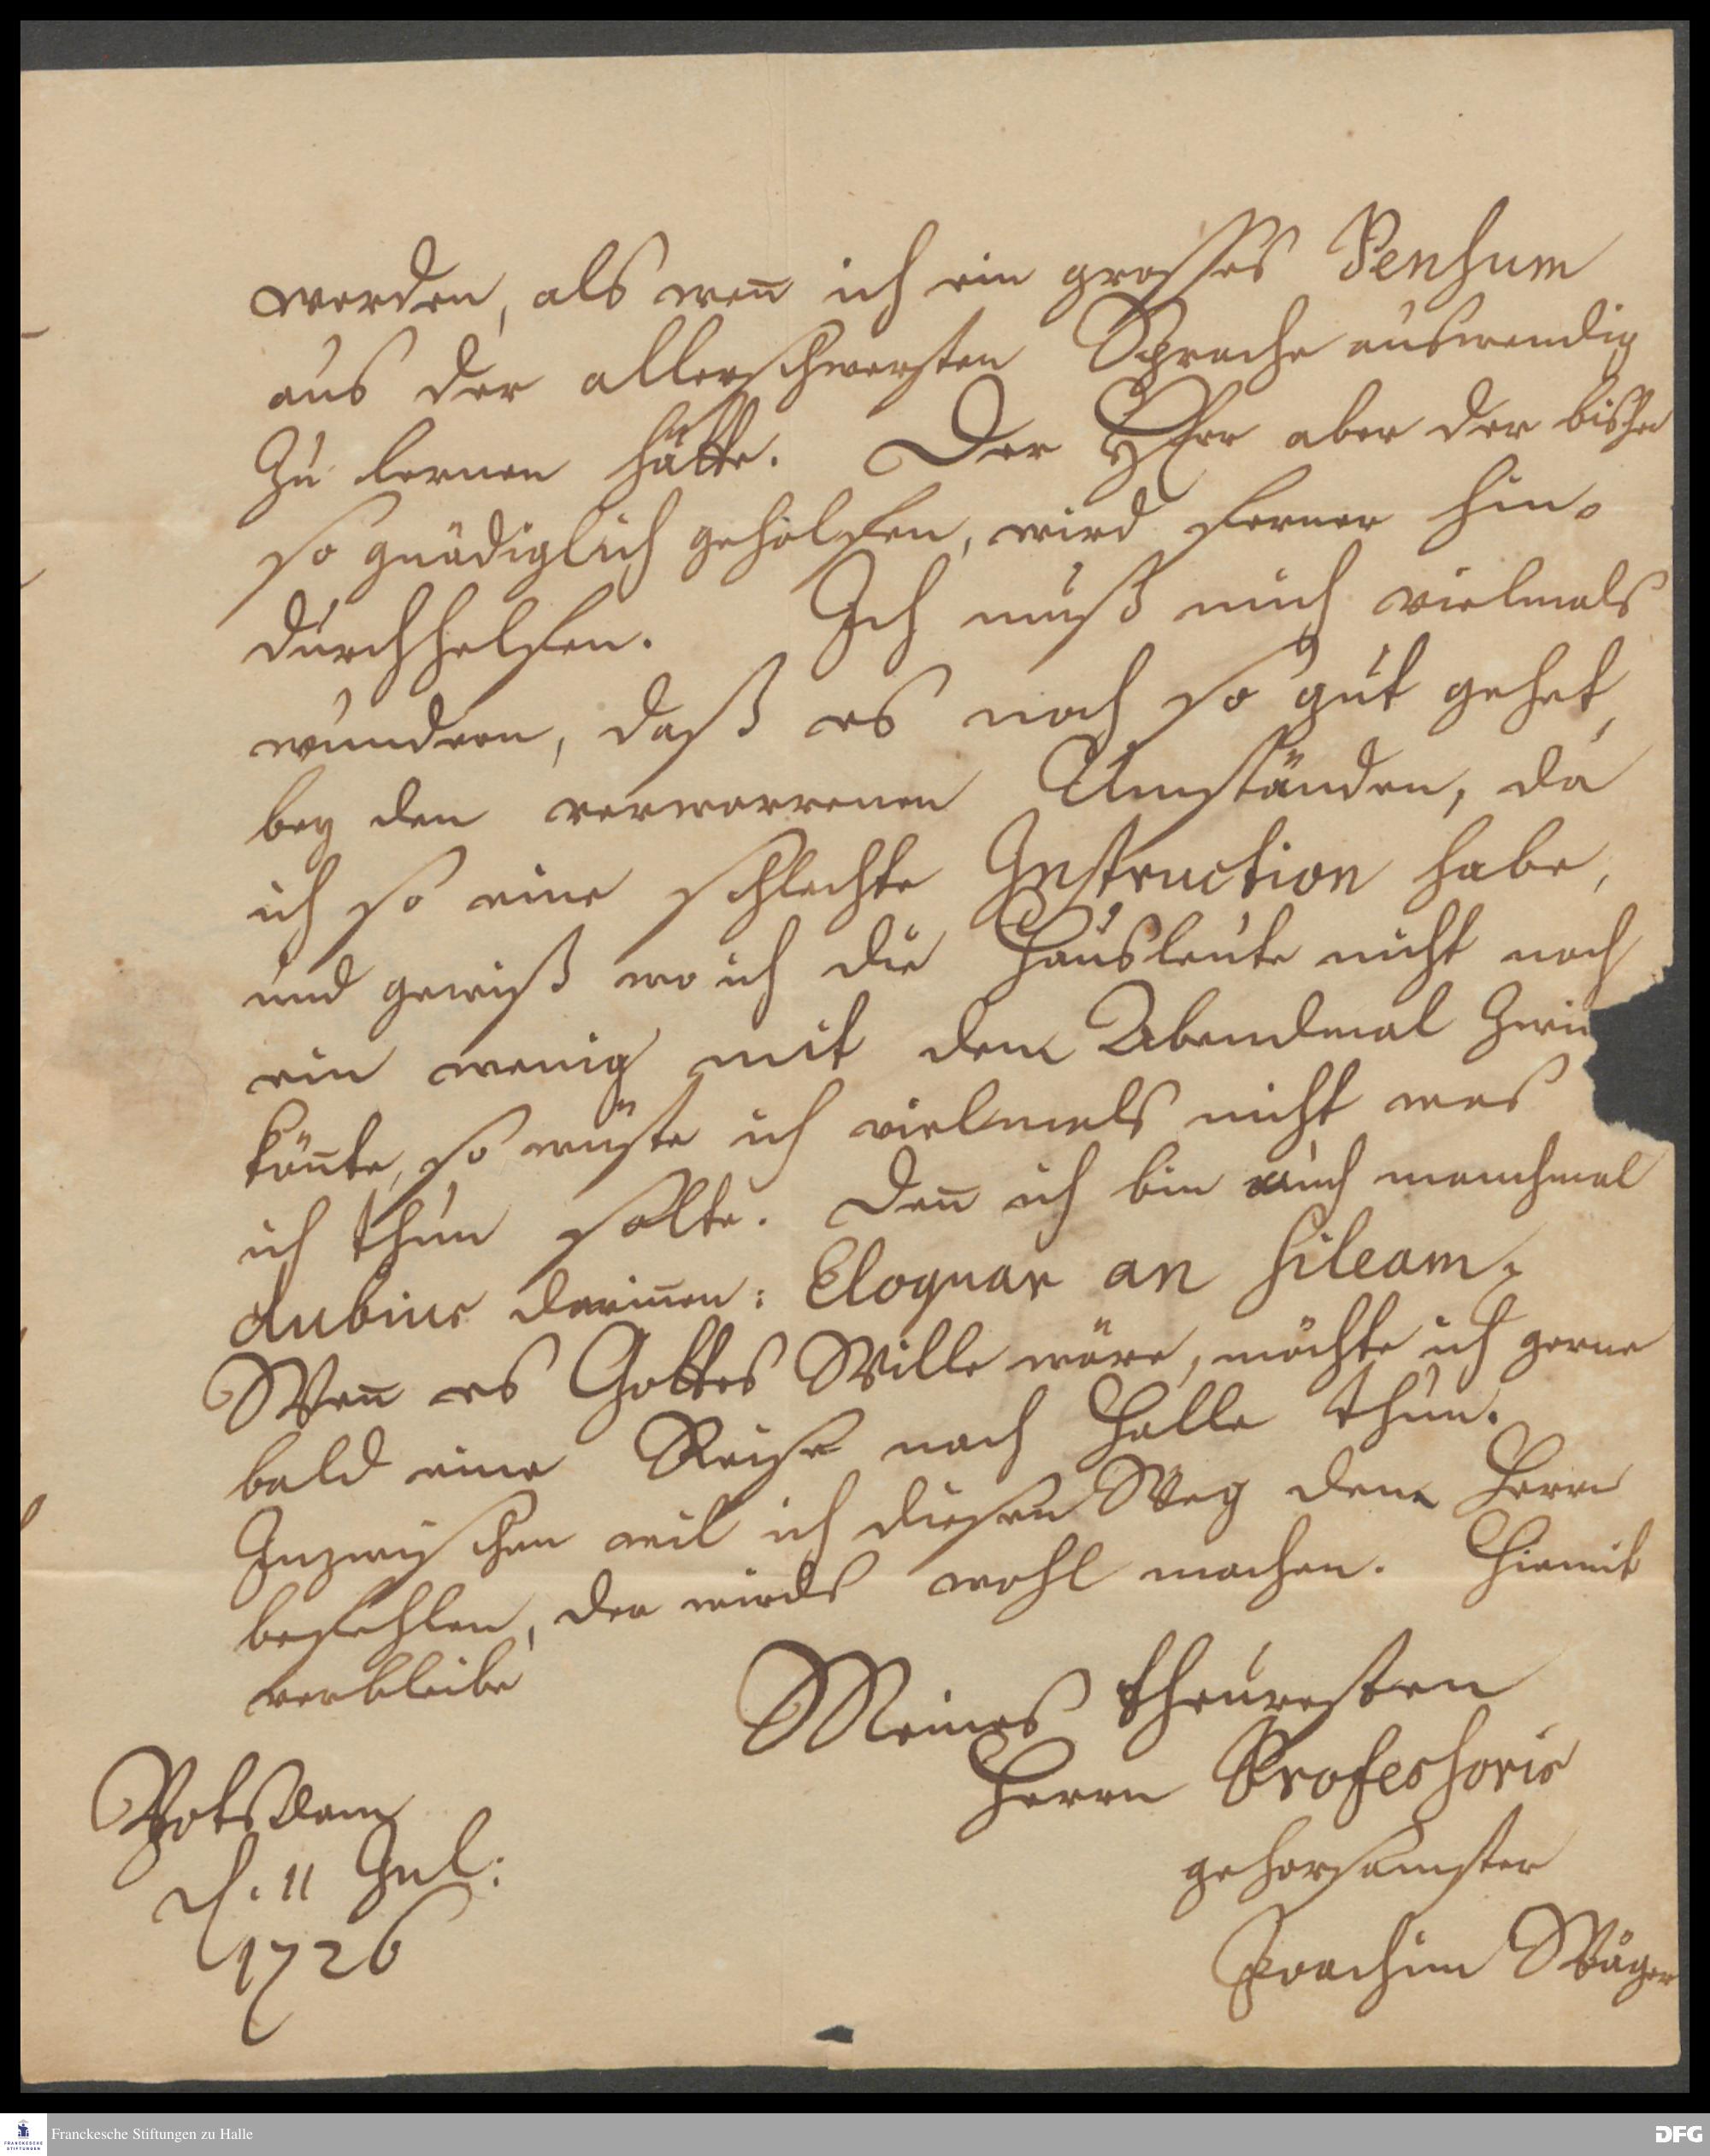 werden, als wen̄ ich ein grosses Pensum
aus der allerschwersten Sprache auswendig
zu lernen hätte. Der HErr aber der bisher
so gnädiglich geholffen, wird ferner hin-
durchhelffen. Ich muß mich vielmals
wundern, daß es noch so gut gehet,
bey den verworrenen Umständen, da
ich so eine schlechte Instruction habe,
und gewiß wo ich die Hausleute nicht noch
ein wenig mit dem Abendmal
kön̄te, so wüste ich vielmals nicht was
ich thun solte. Den̄ ich bin auch manchmal
dubius darin̄en: Eloquar an sileam.
Wen̄ es Gottes Wille wäre, möchte ich gerne
bald eine Reise nach Halle thun.
Inzwischen wil ich diesen Weg dem Herrn
befehlen, der wirds wohl machen. Hiemit
verbleibe
Meines theuresten
Herrn Professoris
gehorsamster
Joachim Wäger
Potsdam
d. 11 Jul:
1726
Franckesche Stiftungen zu Halle
FRANCKESCHE STIFTUNGEN
DFG